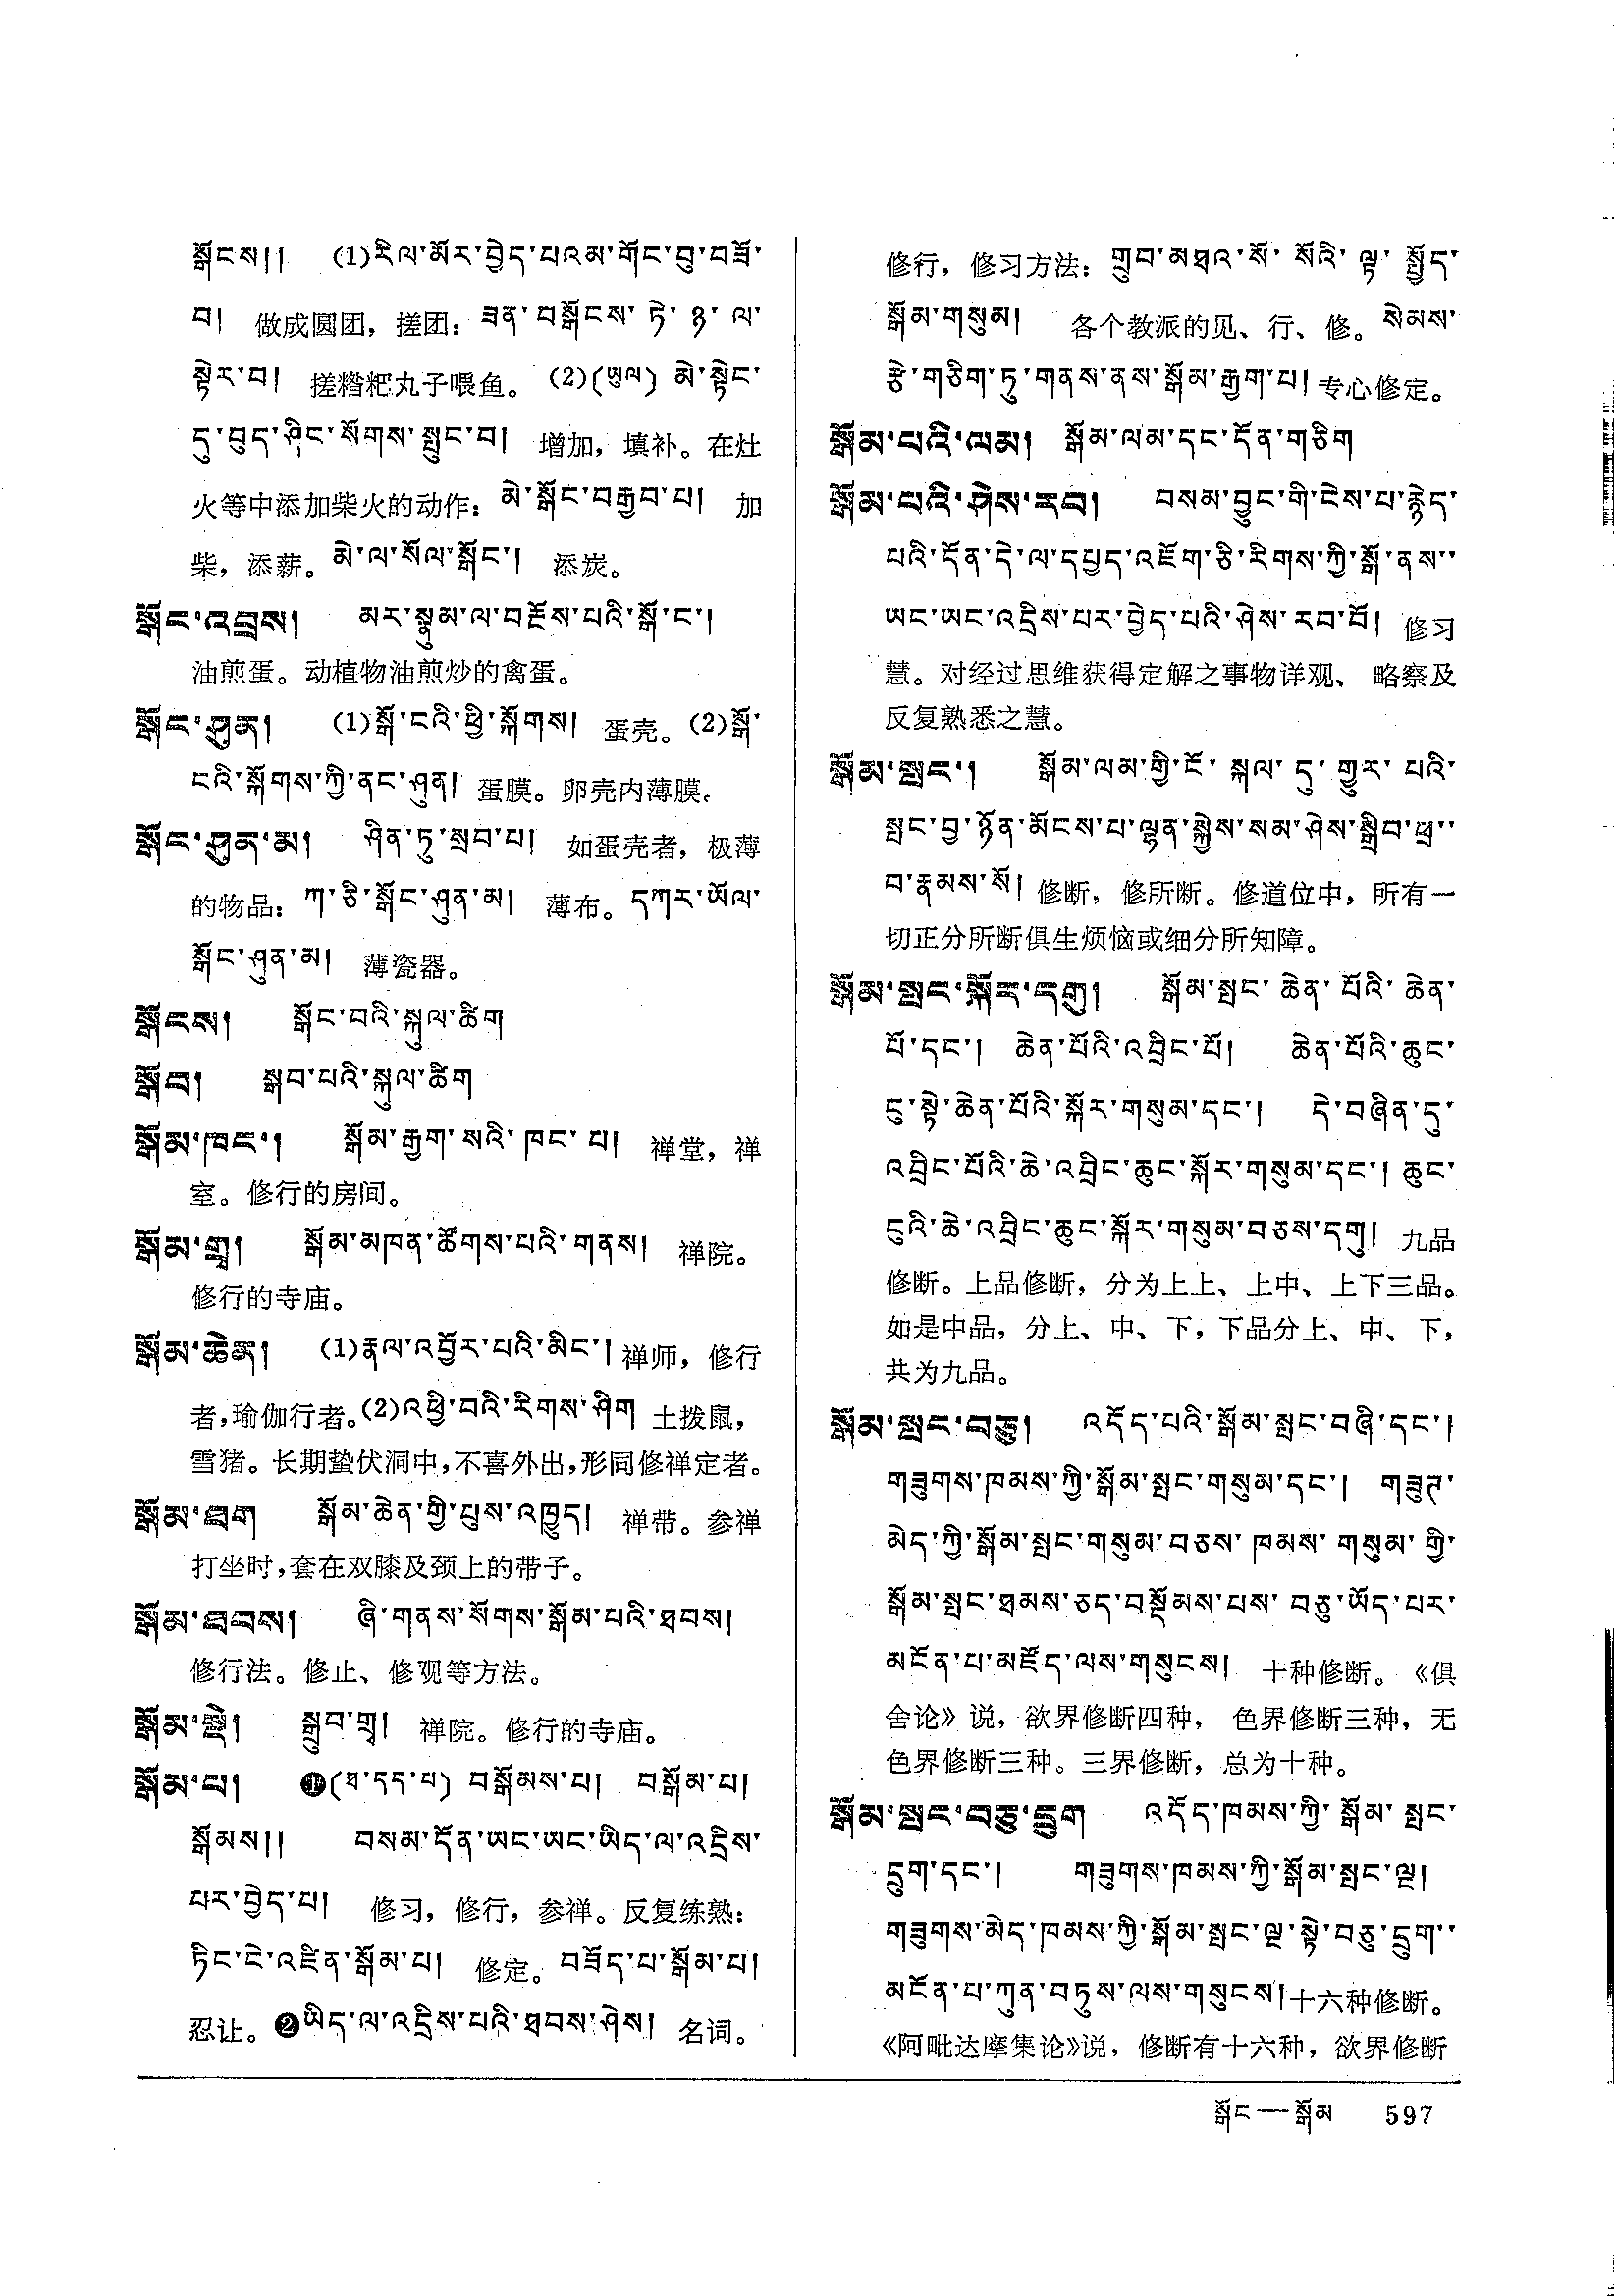 སྒོངས།། (1)རིལ་མོར་བྱེད་པའམ་གོང་བུ་བཟོ་
བ། 做成圆团，搓团：ཟན་བསྒོངས་ཏེ་ཉ་ལ་
སྟེར་བ། 搓糌粑丸子喂鱼。(2)(ཡུལ) མེ་སྟེང་
དུ་བུད་ཤིང་སོགས་སྤུང་བ། 增加，填补。在灶
火等中添加柴火的动作：མེ་སྒོང་བརྒྱབ་པ། 加
柴，添薪。མེ་ལ་སོལ་སྒོང་། 添炭。
སྒོང་འབྲས། མར་སྣུམ་ལ་བརྔོས་པའི་སྒོ་ང་།
油煎蛋。动植物油煎炒的禽蛋。
སྒོང་ཤུན། (1)སྒོ་ངའི་ཕྱི་སྐོགས། 蛋壳。(2)སྒོ་
ངའི་སྐོགས་ཀྱི་ནང་ཤུན། 蛋膜。卵壳内薄膜.
སྒོང་ཤུན་མ། ཤིན་ཏུ་སྲབ་པ། 如蛋壳者，极薄
的物品：ཀ་ཅི་སྒོང་ཤུན་མ། 薄布。དཀར་ཡོལ་
སྒོང་ཤུན་མ། 薄瓷器。
སྒོངས། སྒོང་བའི་སྐུལ་ཚིག
སྒོབ། སྒབ་པའི་སྐུལ་ཚིག
སྒོམ་ཁང་། སྒོམ་རྒྱག་སའི་ཁང་པ། 禅堂，禅
室。修行的房间。
སྒོམ་གྲྭ། སྒོམ་མཁན་ཚོགས་པའི་གནས། 禅院。
修行的寺庙。
སྒོམ་ཆེན། (1)རྣལ་འབྱོར་པའི་མིང་། 禅师，修行
者,瑜伽行者。(2)འཕྱི་བའི་རིགས་ཤིག 土拨鼠，
雪猪。长期蛰伏洞中,不喜外出,形同修禅定者。
སྒོམ་ཐག སྒོམ་ཆེན་གྱི་པུས་འཁྱུད། 禅带。参禅
打坐时,套在双膝及颈上的带子。
སྒོམ་ཐབས། ཞི་གནས་སོགས་སྒོམ་པའི་ཐབས།
修行法。修止、修观等方法。
སྒོམ་སྡེ། སྒྲུབ་གྲྭ། 禅院。修行的寺庙。
སྒོམ་པ། ❶(ཐ་དད་པ) བསྒོམས་པ། བསྒོམ་པ།
སྒོམས།། བསམ་དོན་ཡང་ཡང་ཡིད་ལ་འདྲིས་
པར་བྱེད་པ། 修习，修行，参禅。反复练熟：
ཏིང་ངེ་འཛིན་སྒོམ་པ། 修定。བཟོད་པ་སྒོམ་པ།
忍让。❷ཡིད་ལ་འདྲིས་པའི་ཐབས་ཤེས། 名词。
修行，修习方法：གྲུབ་མཐའ་སོ་སོའི་ལྟ་སྤྱོད་
སྒོམ་གསུམ། 各个教派的见、行、修。སེམས་
རྩེ་གཅིག་ཏུ་གནས་ནས་སྒོམ་རྒྱག་པ། 专心修定。
སྒོམ་པའི་ལམ། སྒོམ་ལམ་དང་དོན་གཅིག
སྒོམ་པའི་ཤེས་རབ། བསམ་བྱུང་གི་ངེས་པ་རྙེད་
པའི་དོན་དེ་ལ་དཔྱད་འཇོག་ཅི་རིགས་ཀྱི་སྒོ་ནས་་
ཡང་ཡང་འདྲིས་པར་བྱེད་པའི་ཤེས་རབ་བོ། 修习
慧。对经过思维获得定解之事物详观、略察及
反复熟悉之慧。
སྒོམ་སྤང་། སྒོམ་ལམ་གྱི་ངོ་སྐལ་དུ་གྱུར་པའི་
སྤང་བྱ་ཉོན་མོངས་པ་ལྷན་སྐྱེས་སམ་ཤེས་སྒྲིབ་ཕྲ་་
བ་རྣམས་སོ། 修断，修所断。修道位中，所有一
切正分所断俱生烦恼或细分所知障。
སྒོམ་སྤང་སྐོར་དགུ། སྒོམ་སྤང་ཆེན་པོའི་ཆེན་
པོ་དང་། ཆེན་པོའི་འབྲིང་པོ། ཆེན་པོའི་ཆུང་
ངུ་སྟེ་ཆེན་པོའི་སྐོར་གསུམ་དང་། དེ་བཞིན་དུ་
འབྲིང་པོའི་ཆེ་འབྲིང་ཆུང་སྐོར་གསུམ་དང་། ཆུང་
ངུའི་ཆེ་འབྲིང་ཆུང་སྐོར་གསུམ་བཅས་དགུ། 九品
修断。上品修断，分为上上、上中、上下三品。
如是中品，分上、中、下，下品分上、中、下，
共为九品。
སྒོམ་སྤང་བཅུ། འདོད་པའི་སྒོམ་སྤང་བཞི་དང་།
གཟུགས་ཁམས་ཀྱི་སྒོམ་སྤང་གསུམ་དང་། གཟུཊ་
མེད་ཀྱི་སྒོམ་སྤང་གསུམ་བཅས་ཁམས་གསུམ་གྱི་
སྒོམ་སྤང་ཐམས་ཅད་བསྡོམས་པས་བཅུ་ཡོད་པར་
མངོན་པ་མཛོད་ལས་གསུངས། 十种修断。《俱
舍论》说，欲界修断四种，色界修断三种，无
色界修断三种。三界修断，总为十种。
སྒོམ་སྤང་བཅུ་དྲུག འདོད་ཁམས་ཀྱི་སྒོམ་སྤང་
དྲུག་དང་། གཟུགས་ཁམས་ཀྱི་སྒོམ་སྤང་ལྔ།
གཟུགས་མེད་ཁམས་ཀྱི་སྒོམ་སྤང་ལྔ་སྟེ་བཅུ་དྲུག་་
མངོན་པ་ཀུན་བཏུས་ལས་གསུངས། 十六种修断。
《阿毗达摩集论》说，修断有十六种，欲界修断
སྒོང—སྒོམ 597